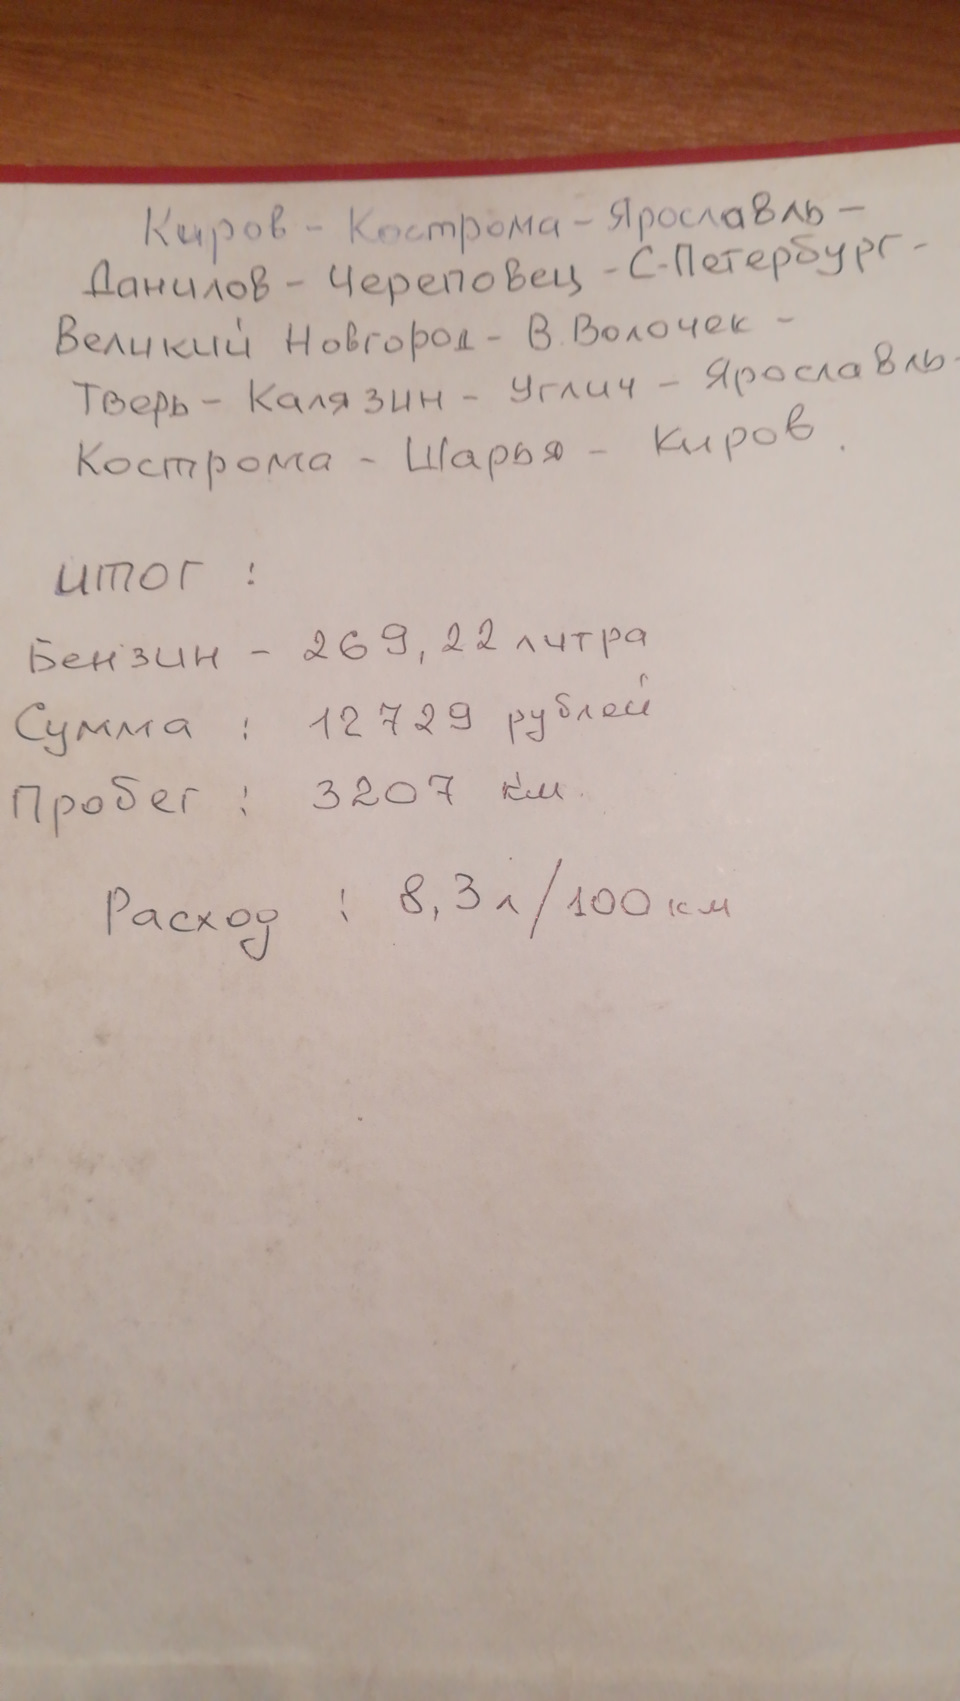 Киров - Кострома - Ярославль -
Данилов - Череповец - С-Петербург -
Великий Новгород - В.Волочек -
Тверь - Калязин - Углич - Ярославль -
Кострома - Шарья - Киров.
итог :
Бензин - 269,22 литра
Сумма : 12729 рублей
Пробег : 3207 км.
Расход : 8,3л/100км